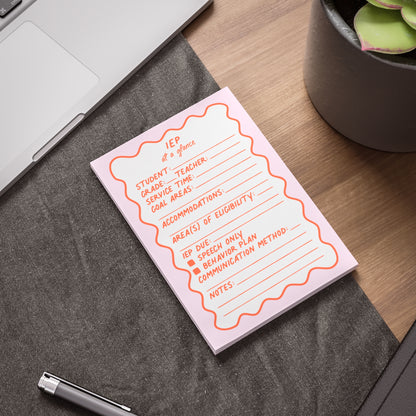 IEP
at a glance
STUDENT:
GRADE: TEACHER:
SERVICE TIME:
GOAL AREAS:
ACCOMMODATIONS:
AREA(S) OF ELIGIBILITY:
IEP DUE:
SPEECH ONLY
BEHAVIOR PLAN
COMMUNICATION METHOD:
NOTES: